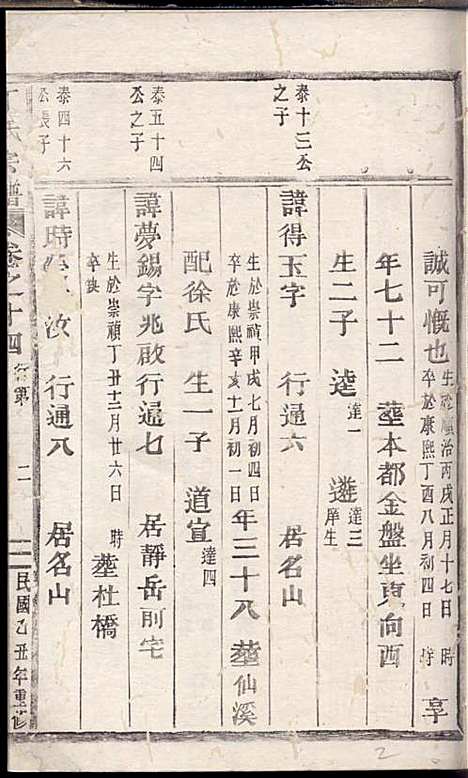 誠可慨也 生於順治丙戌正月十七日 時
卒於康熙丁酉八月初四日 時 享
年七十二 葬本都金盤坐東向酉
生二子 達一 遴達三
庠生
泰十三公
之子
諱得玉字 行通六 居名山
生於崇禎甲戌七月初四日
卒於康熙辛亥十一月初一日 年三十八 葬仙溪
配徐氏 生一子 道宣達四
泰五十四
公之子
諱夢錫字兆啟行通七 居靜岳前宅
生於崇禎丁丑十二月廿六日 時
卒失 葬杜橋
泰四十六
公長子
諱時 汝 行通八 居名山
譜 卷之十四 行第 二 民國乙丑年重修
2